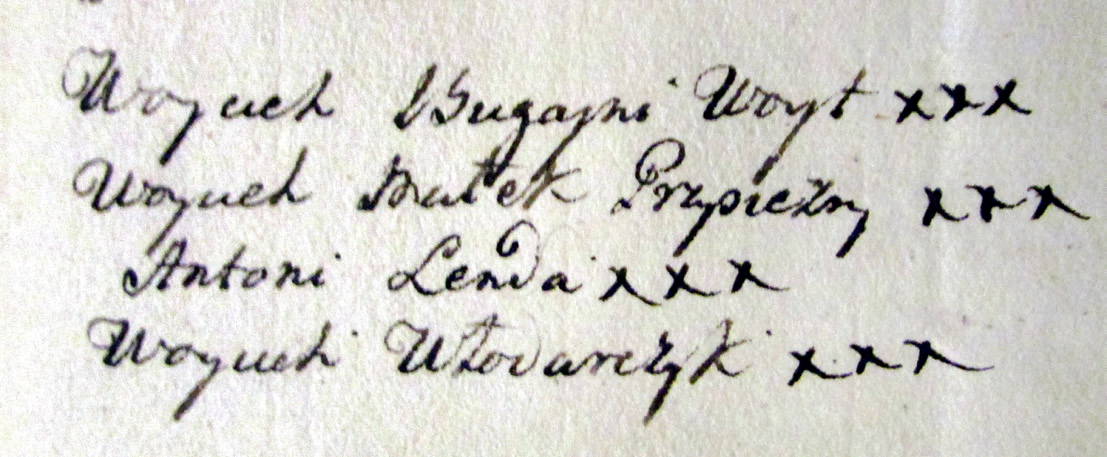 Woyciech Bugayni Woyt xxx
Woyciech Białek Przysiężny xxx
Antoni Lenda xxx
Woyciech Włodarczyk xxx